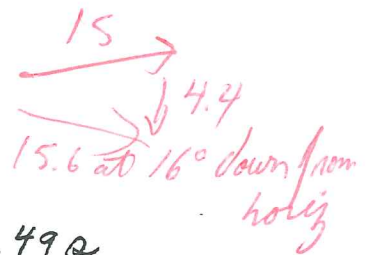 15
4.4
15.6 at 16° down from
horiz
49 s